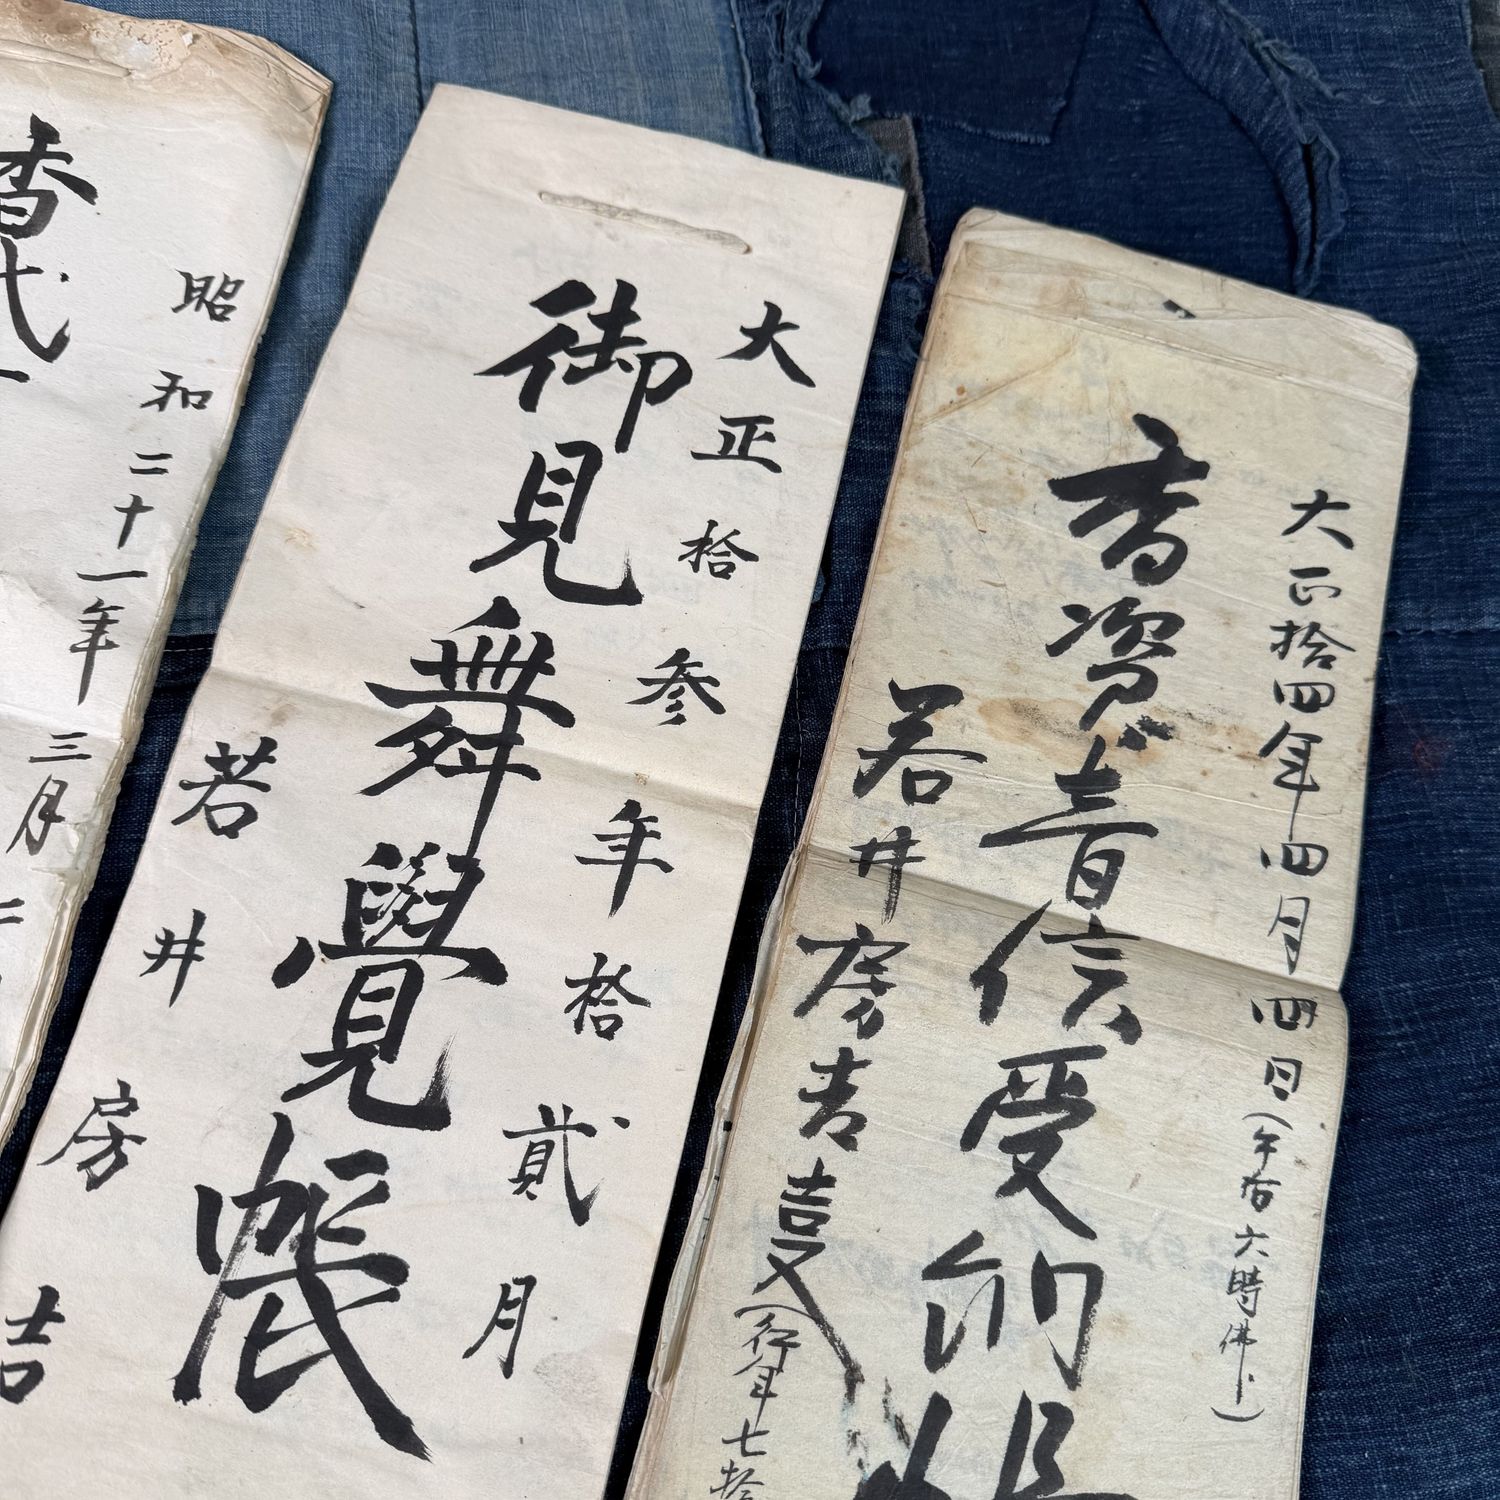 大正拾四年四月四日(午后六時佛
香資音信受納帖
若井房吉
(行年七拾
大正拾参年拾貳月
御見舞覺帳
若井房吉
昭和二十一年三月
香代